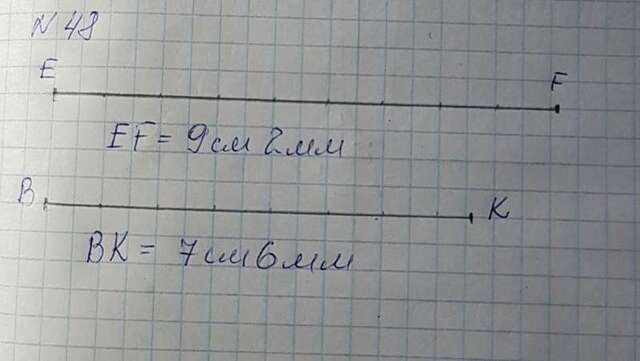 N 48
E F
EF = 9см 2мм
B K
BK = 7см 6мм